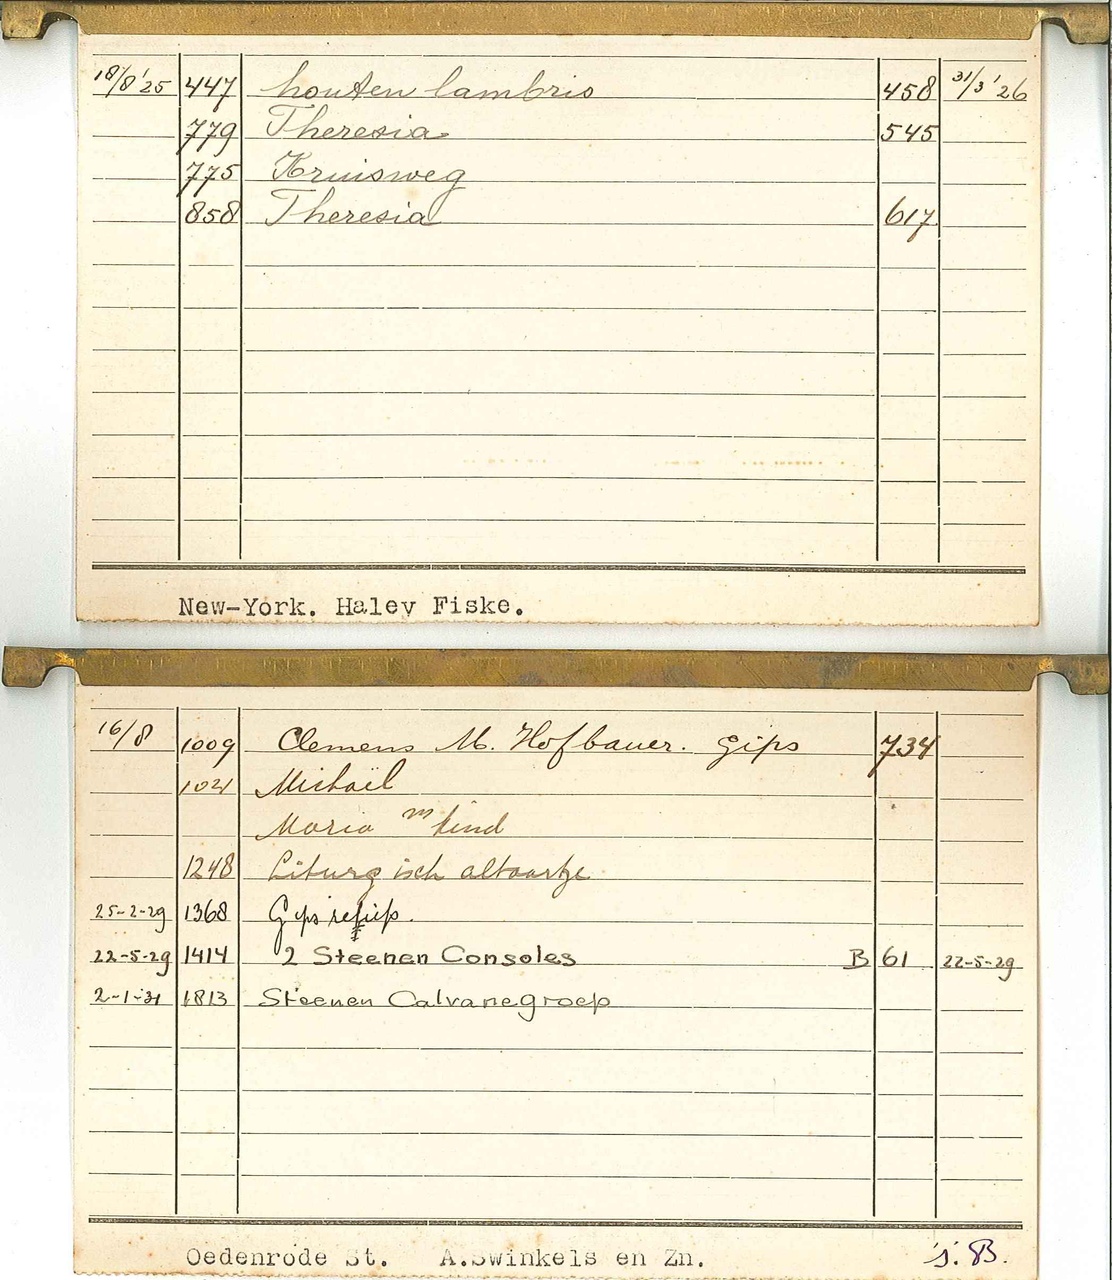 18/8'25 447 houten lambris 458 31/3'26
779 Theresia 545
775 Kruisweg
858 Theresia 617
New-York. Haley Fiske.
16/8 1009 Clemens M. Hofbauer. gips 734
1021 Michaël
Maria m kind
1248 Liturgisch altaartje
25-2-29 1368 Gips
22-5-29 1414 2 Steenen Consoles B 61 22-5-29
2-1-31 1813 Steenen Calvariegroep
Oedenrode St. A.Swinkels en Zn. 's. B.